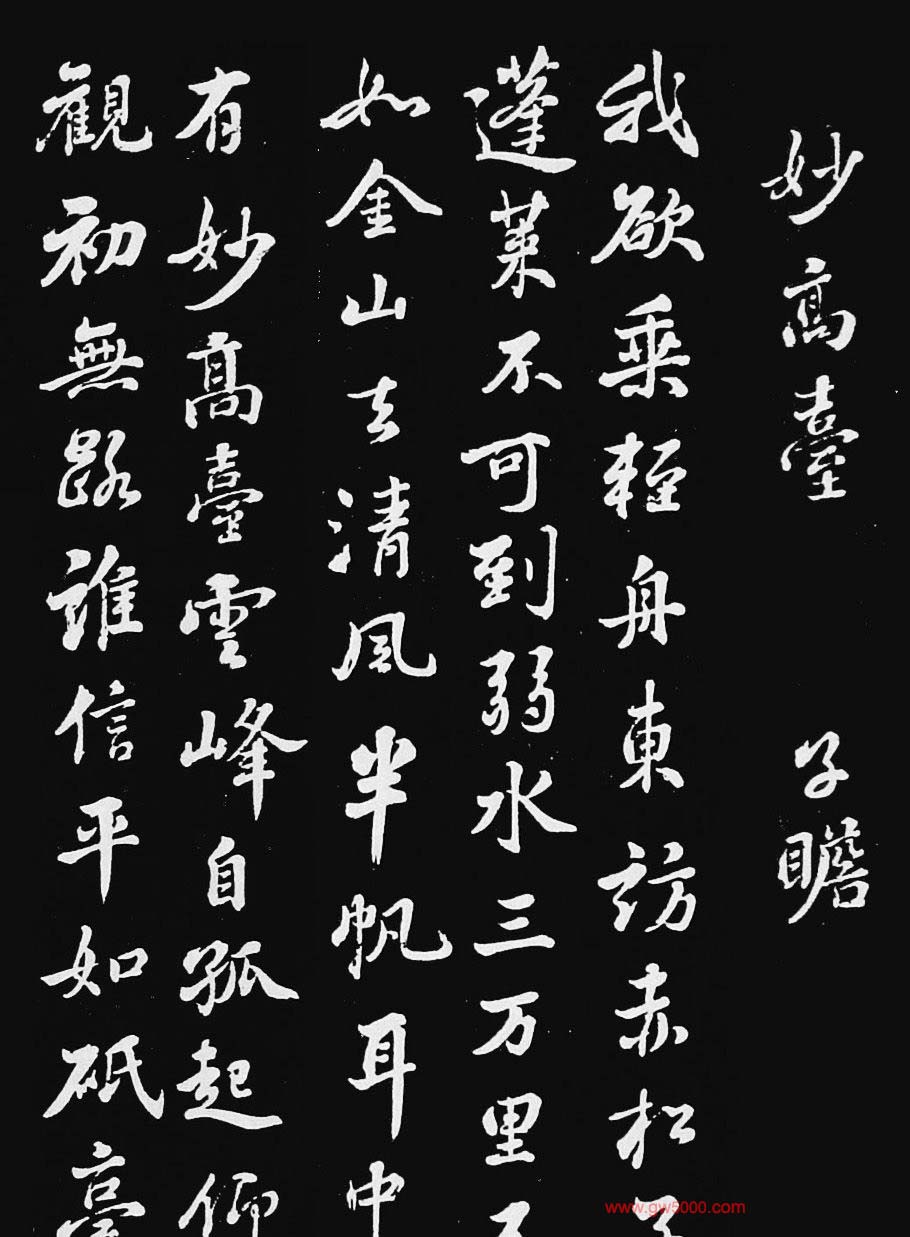 妙高臺 子瞻
我欲乘輕舟東訪赤松子
蓬萊不可到弱水三万里不
如金山去清風半帆耳中
有妙高臺雲峰自孤起仰
觀初無路誰信平如砥臺
www.gw5000.com